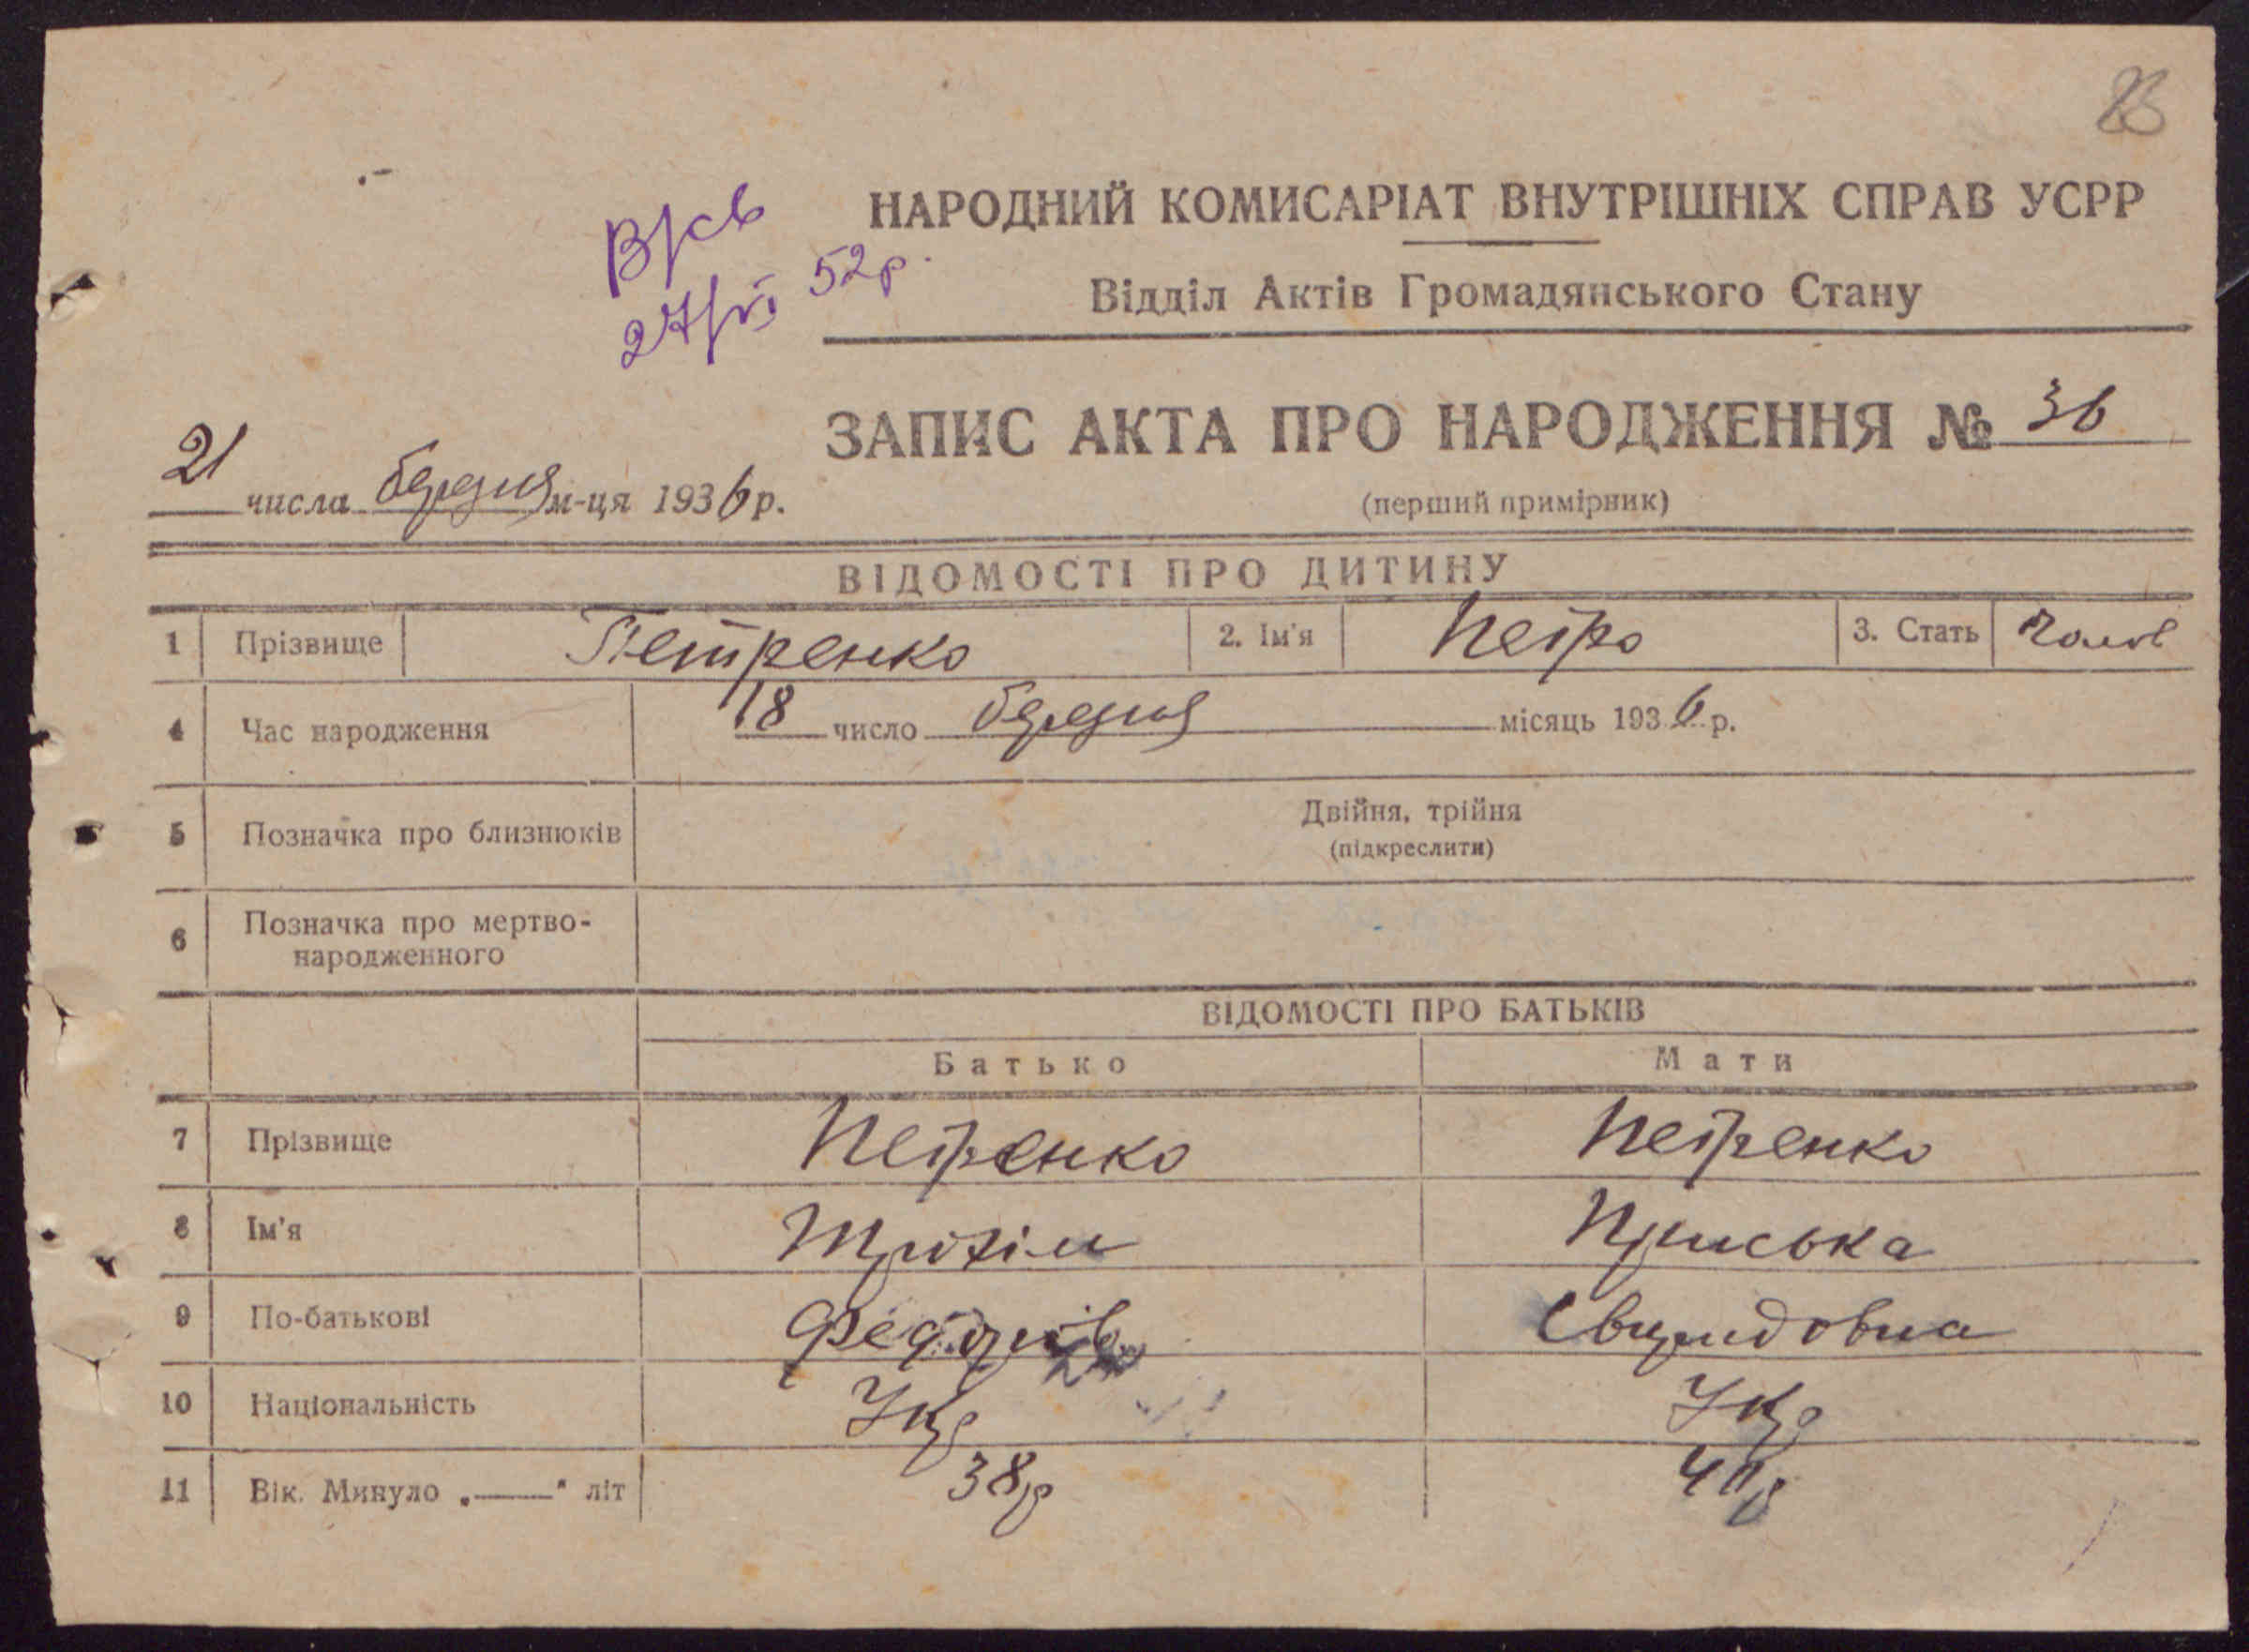 23
НАРОДНИЙ КОМИСАРІАТ ВНУТРІШНІХ СПРАВ УСРР
В/св
27/VI 52 р.
Відділ Актів Громадянського Стану
ЗАПИС АКТА ПРО НАРОДЖЕННЯ № 36
21 числа березня м-ця 1936 р.
(перший примірник)
ВІДОМОСТІ ПРО ДИТИНУ
1 Прізвище Петренко 2. Ім'я Петро 3. Стать Чолов
4 Час народження 18 число березня місяць 1936 р.
5 Позначка про близнюків Двійня, трійня
(підкреслити)
6 Позначка про мертво-
народженного
ВІДОМОСТІ ПРО БАТЬКІВ
Батько Мати
7 Прізвище Петренко Петренко
8 Ім'я Трохим Приська
9 По-батькові Федоров Свиридовна
10 Національність Укр Укр
11 Вік. Минуло „——" літ 38р 40р